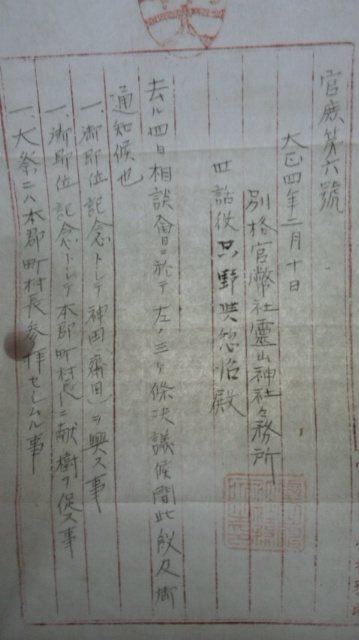 官庶第六號
大正四年二月十日
別格官幣社靈山神社々務所
世話役 只野 殿
去ル四日相談會ニ於テ左ノ三ケ條决議候間此段及御
通知候也
一、御即位記念トシテ神田(齋田)ヲ興ス事
一、御即位記念トシテ本郡町村長ニ献樹ヲ促ス事
一、大祭ニハ本郡町村長参拝セシムル事